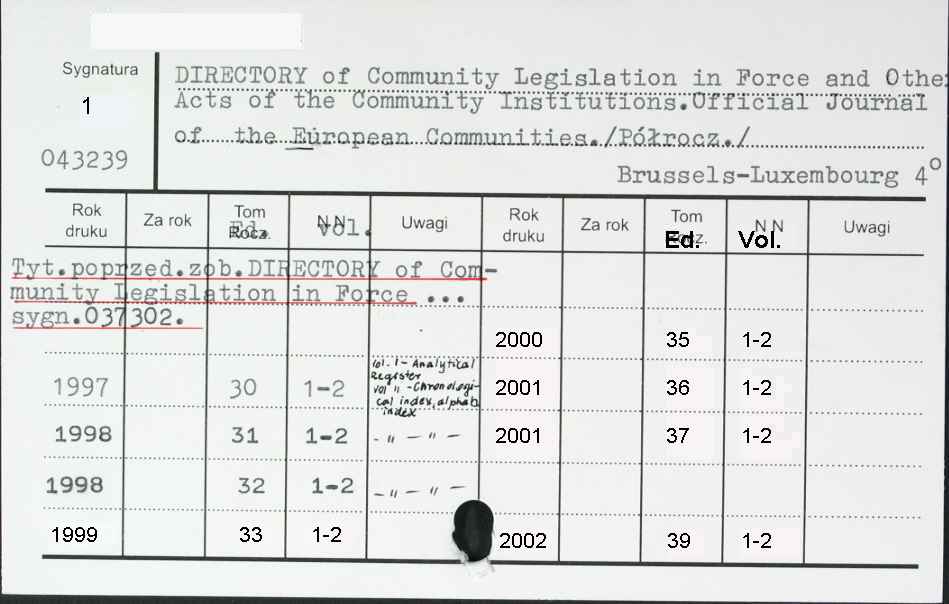 Sygnatura
1
043239
DIRECTORY of Community Legislation in Force and Othe
Acts of the Community Institutions.Official Journal
of the European Communities./Półrocz./
Brussels-Luxembourg 4°
Rok druku Za rok Tom Rocz. Ed. NN Vol. Uwagi Rok druku Za rok Tom Rocz. Ed. NN Vol. Uwagi
Tyt.poprzed.zob.DIRECTORY of Com-
munity Legislation in Force ...
sygn.037302.
2000 35 1-2
1997 30 1-2 Vol. I - Analytical Register vol II - Chronologi- cal index, alphab. index 2001 36 1-2
1998 31 1-2 - " - " - 2001 37 1-2
1998 32 1-2 - " - " -
1999 33 1-2 2002 39 1-2